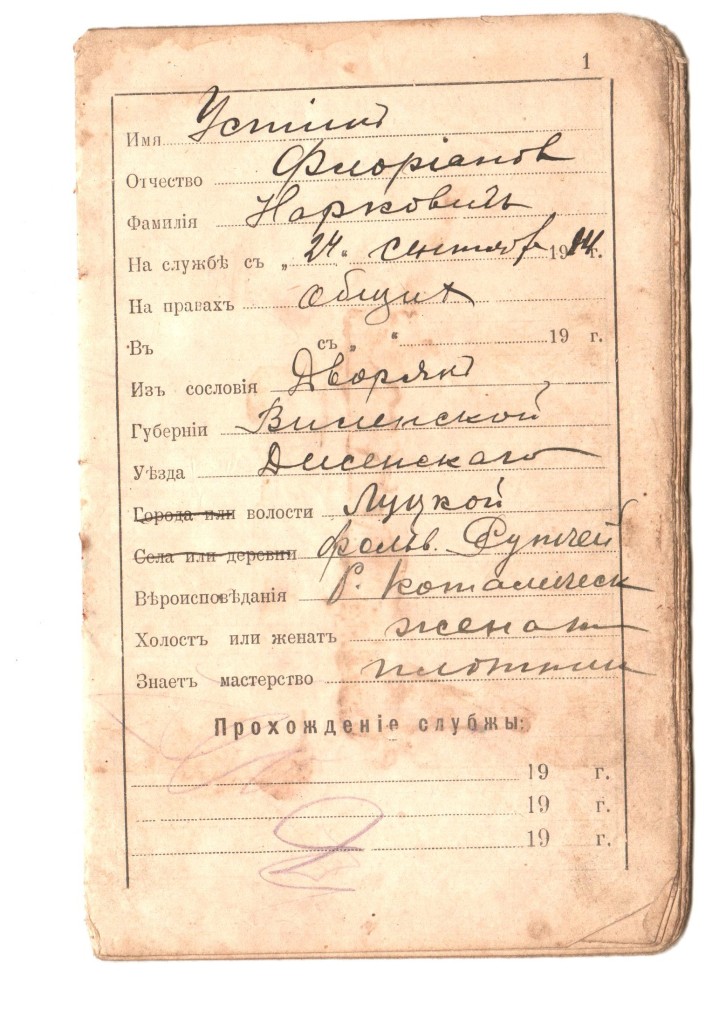 1
Имя Устинъ
Отчество Флоріановъ
Фамилія Нарковичъ
На службѣ съ „ 24 “ сентябр 1914 г.
На правахъ общих
Въ съ „ “ 19 г.
Изъ сословія Дворянъ
Губерніи Виленской
Уѣзда Дисенскаго
Города или волости Луцкой
Села или деревни фольв.
Вѣроисповѣданія Р. Католическ
Холостъ или женатъ женат
Знаетъ мастерство плотник
Прохожденіе слубжы:
19 г.
19 г.
19 г.